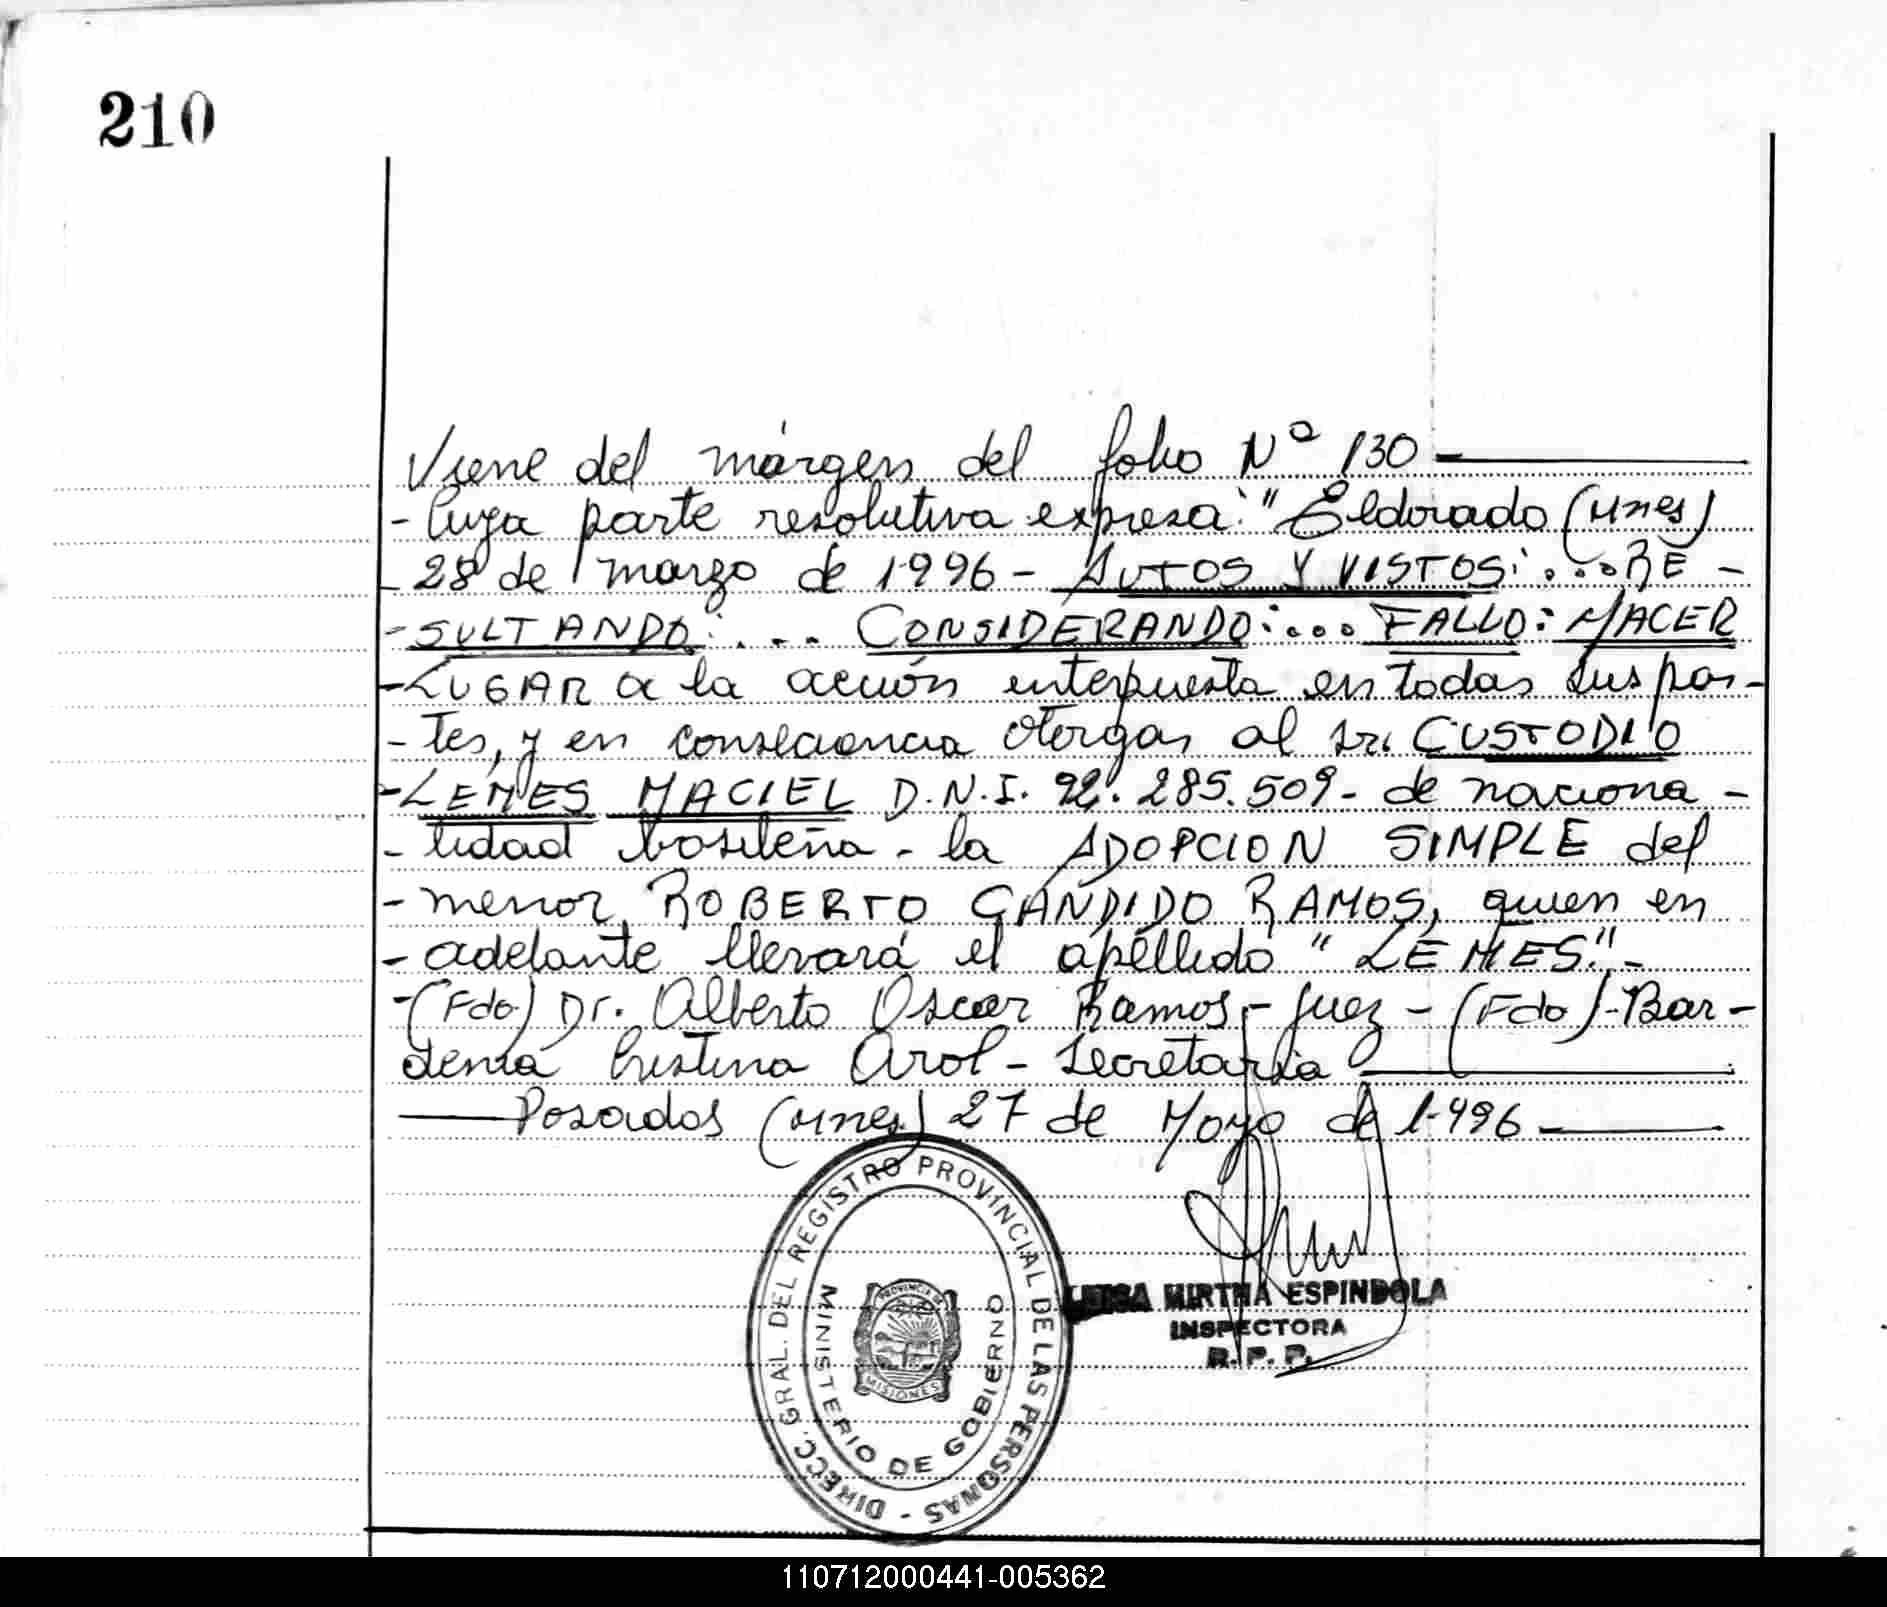 210
Viene del márgen del folio Nº 130
- Cuya parte resolutiva expresa: "Eldorado (Mnes)
- 28 de marzo de 1996 - AUTOS Y VISTOS: ... RE -
- SULTANDO: ... CONSIDERANDO: ... FALLO: HACER
- LUGAR a la acción interpuesta en todas sus par-
- tes, y en consecuencia otorgar al sr. CUSTODIO
- LEMES MACIEL D.N.I. 92.285.509 - de naciona -
- lidad brasileña - la ADOPCION SIMPLE del
- menor ROBERTO CANDIDO RAMOS, quien en
- adelante llevará el apellido "LEMES". -
- (Fdo) Dr. Alberto Oscar Ramos - Juez - (Fdo) - Bar -
denia Cristina Arol - Secretaria
Posadas (Mnes) 27 de Mayo de 1.996
DIRECC. GRAL. DEL REGISTRO PROVINCIAL DE LAS PERSONAS -
MINISTERIO DE GOBIERNO
PROVINCIA DE
MISIONES
LUISA MIRTHA ESPINDOLA
INSPECTORA
R. P. P.
110712000441-005362